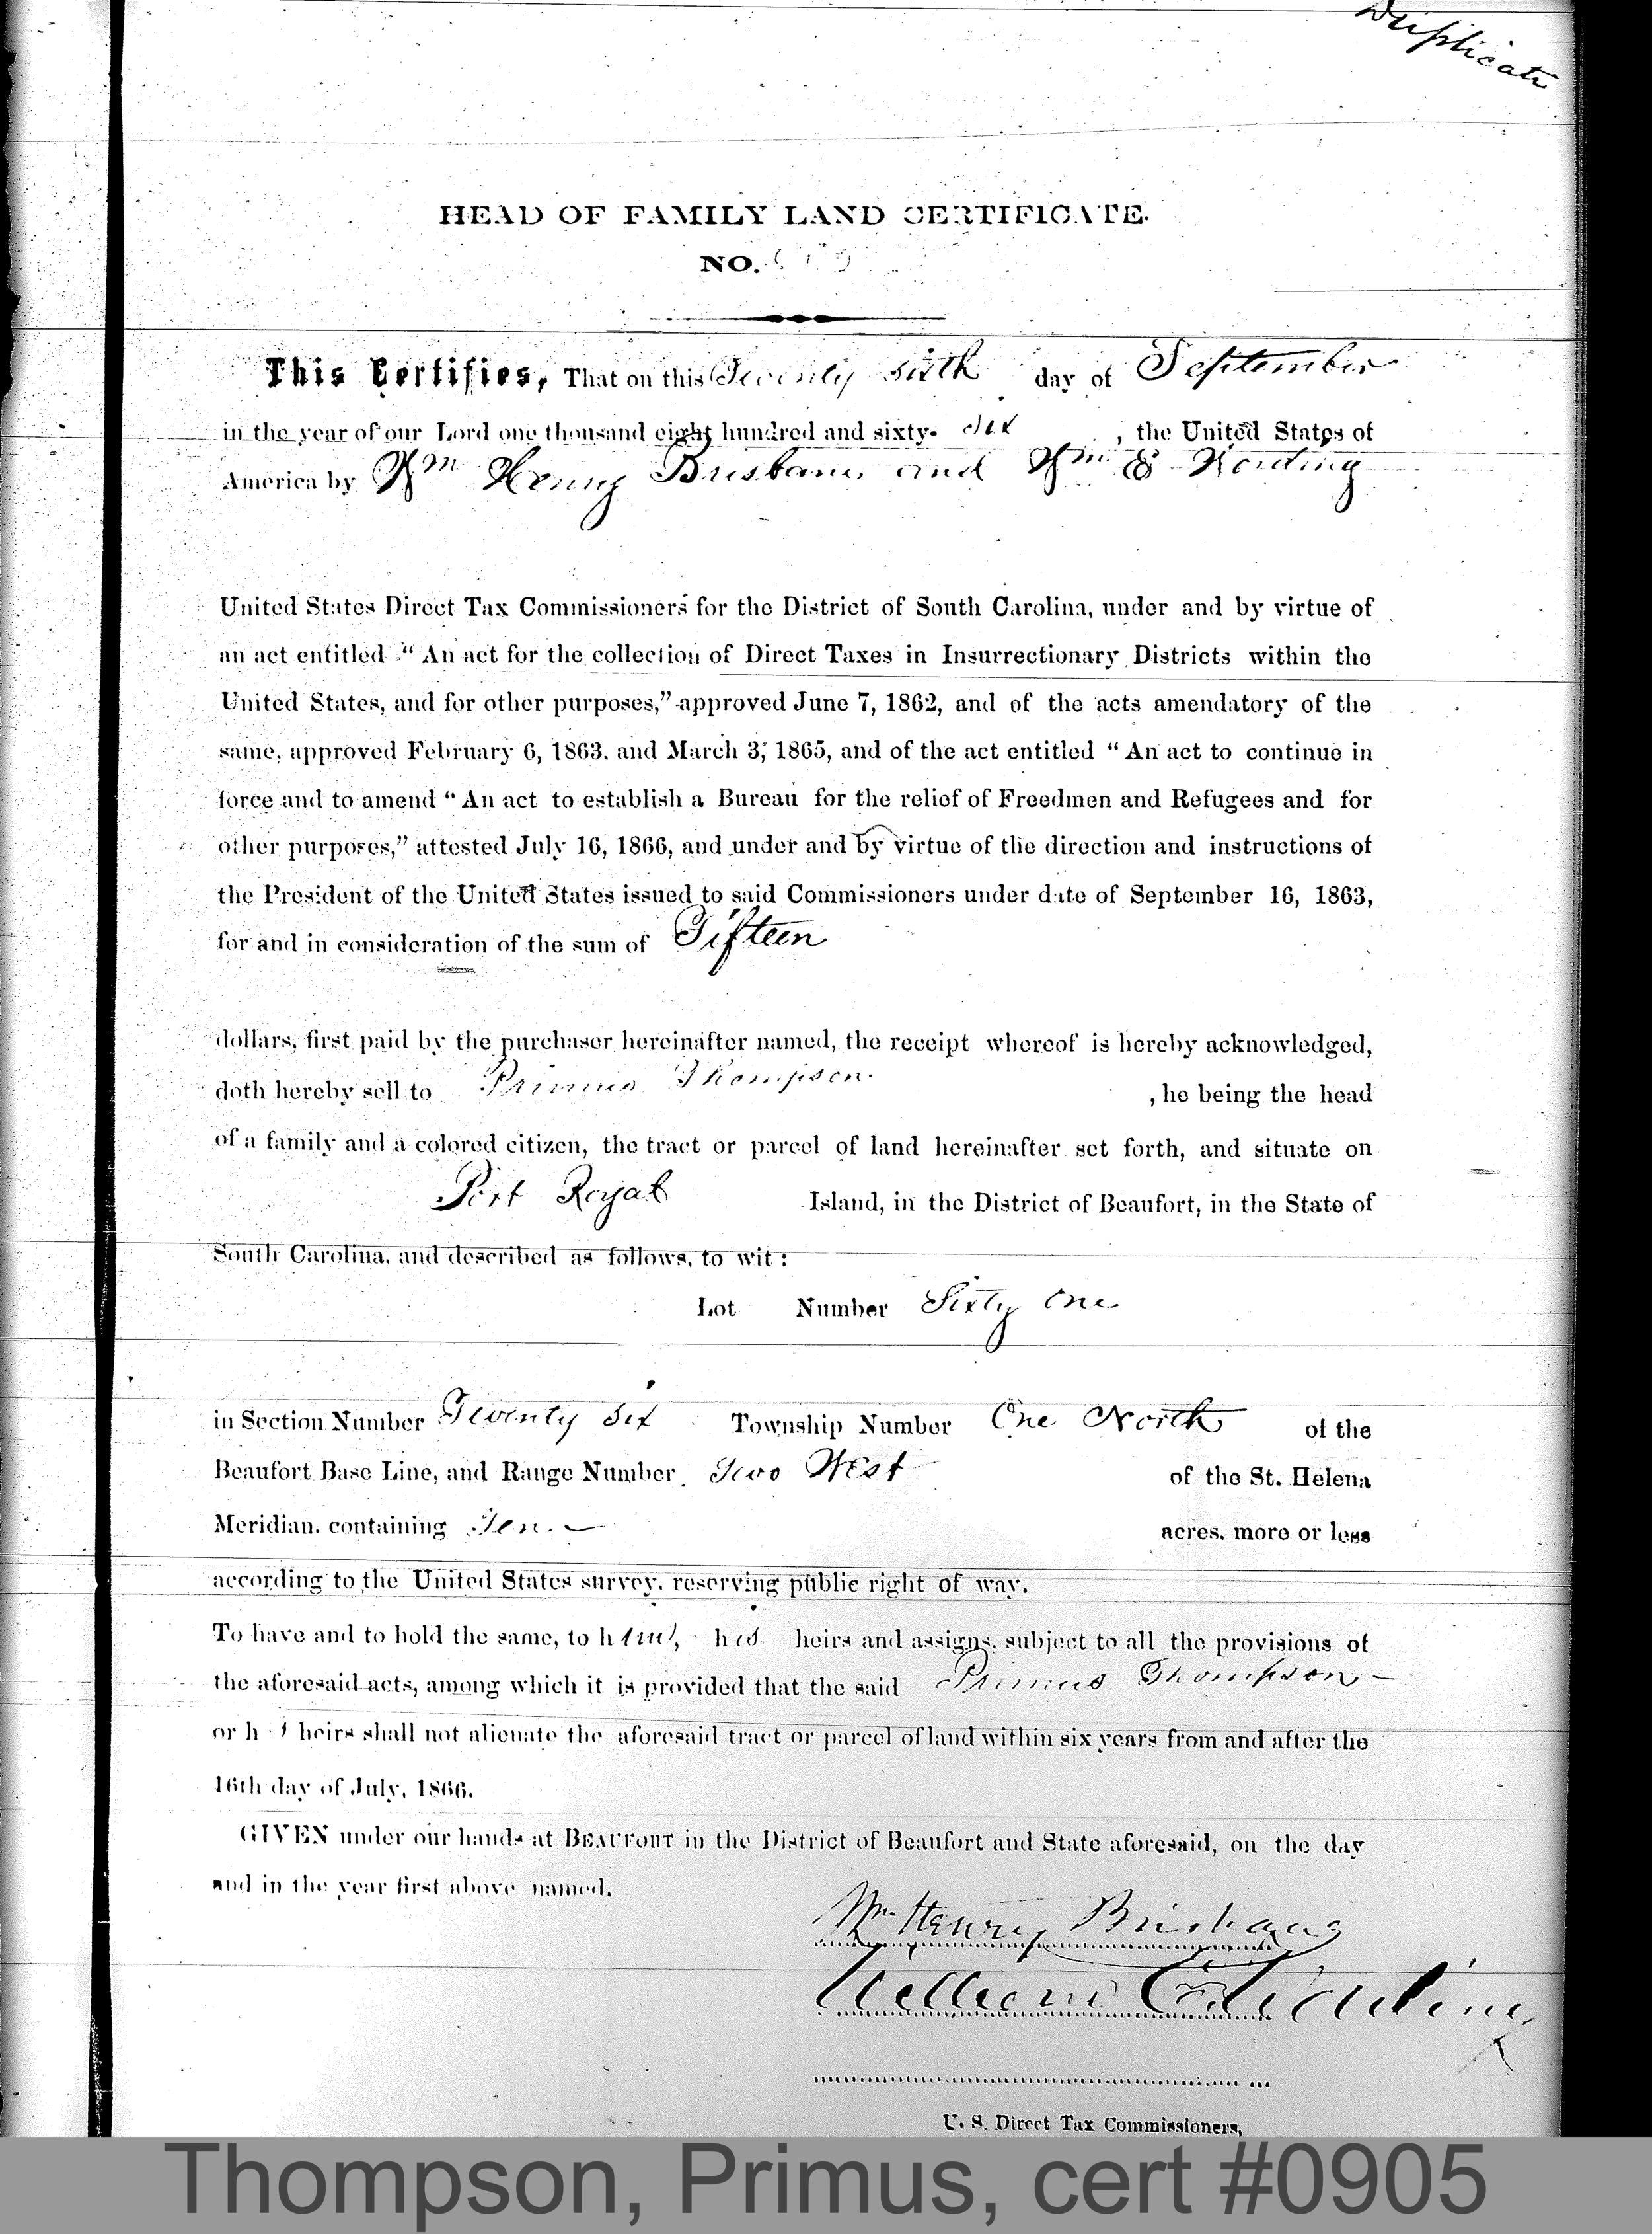 Duplicate
HEAD OF FAMILY LAND CERTIFICATE.
NO.
This Certifies, That on this Twenty sixth day of September
in the year of our Lord one thousand eight hundred and sixty- six , the United States of
America by Wm Henry Brisbane and Wm E Wording
United States Direct Tax Commissioners for the District of South Carolina, under and by virtue of
an act entitled "An act for the collection of Direct Taxes in Insurrectionary Districts within the
United States, and for other purposes," approved June 7, 1862, and of the acts amendatory of the
same, approved February 6, 1863. and March 3, 1865, and of the act entitled "An act to continue in
force and to amend "An act to establish a Bureau for the relief of Freedmen and Refugees and for
other purposes," attested July 16, 1866, and under and by virtue of the direction and instructions of
the President of the United States issued to said Commissioners under date of September 16, 1863,
for and in consideration of the sum of Fifteen
dollars, first paid by the purchaser hereinafter named, the receipt whereof is hereby acknowledged,
doth hereby sell to Primus Thompson , he being the head
of a family and a colored citizen, the tract or parcel of land hereinafter set forth, and situate on
Port Royal Island, in the District of Beaufort, in the State of
South Carolina, and described as follows, to wit:
Lot Number Sixty One
in Section Number Twenty Six Township Number One North of the
Beaufort Base Line, and Range Number Two West of the St. Helena
Meridian, containing Ten acres, more or less
according to the United States survey, reserving public right of way.
To have and to hold the same, to him, his heirs and assigns, subject to all the provisions of
the aforesaid acts, among which it is provided that the said Primus Thompson
or his heirs shall not alienate the aforesaid tract or parcel of land within six years from and after the
16th day of July, 1866.
GIVEN under our hands at BEAUFORT in the District of Beaufort and State aforesaid, on the day
and in the year first above named.
Wm Henry Brisbane
William E Wording
U. S. Direct Tax Commissioners,
Thompson, Primus, cert #0905